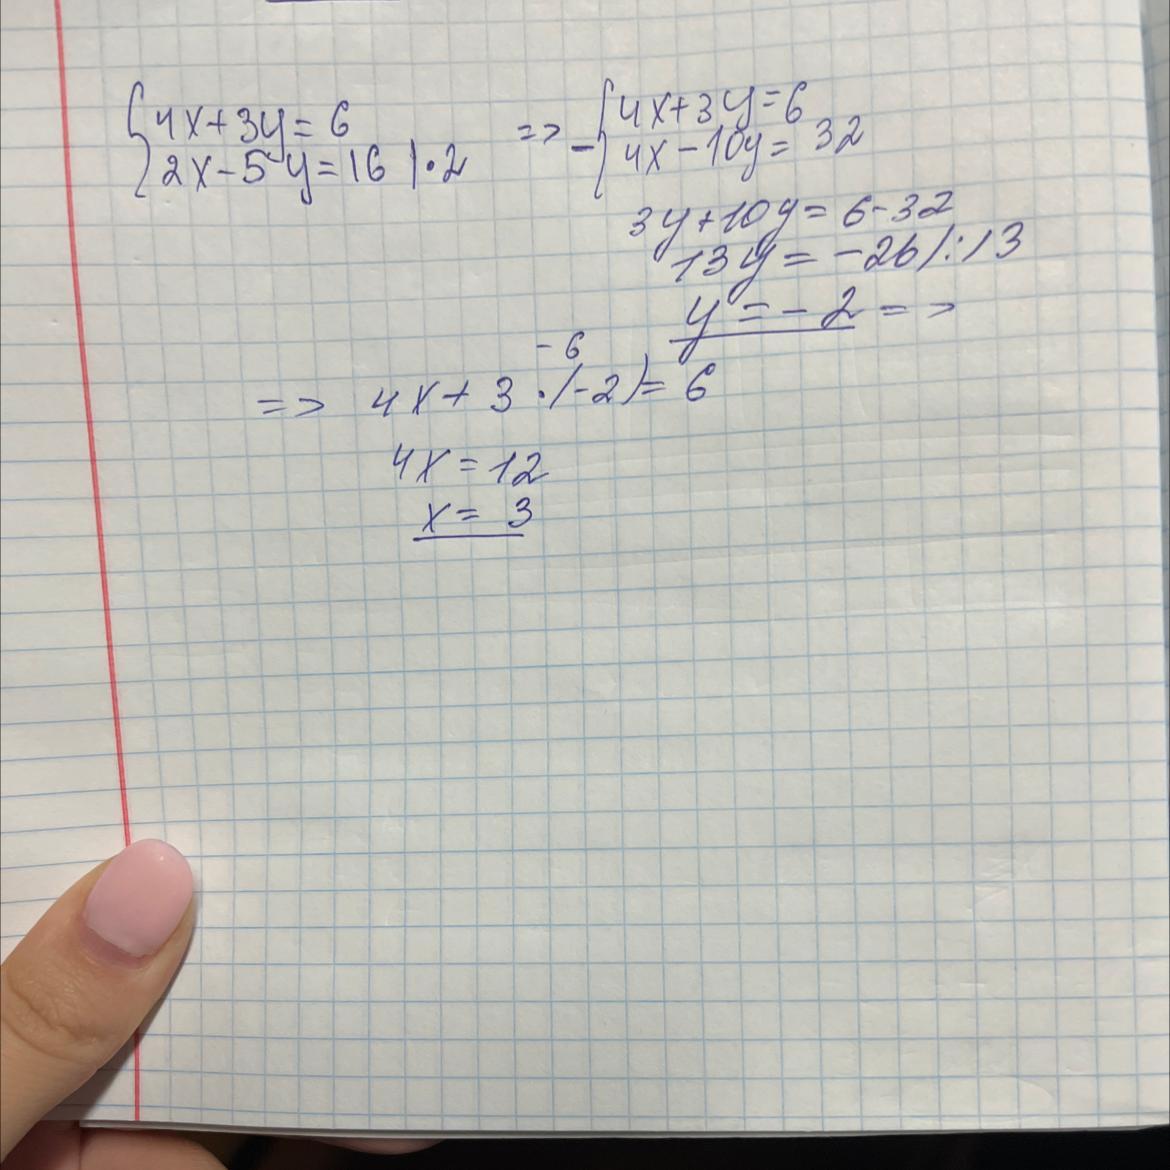 {4x+3y=6
{2x-5y=16 |·2
=> -{4x+3y=6
{4x-10y=32
3y+10y=6-32
13y=-26/:13
y=-2 =>
-6
=> 4x+3·(-2)=6
4x=12
x=3